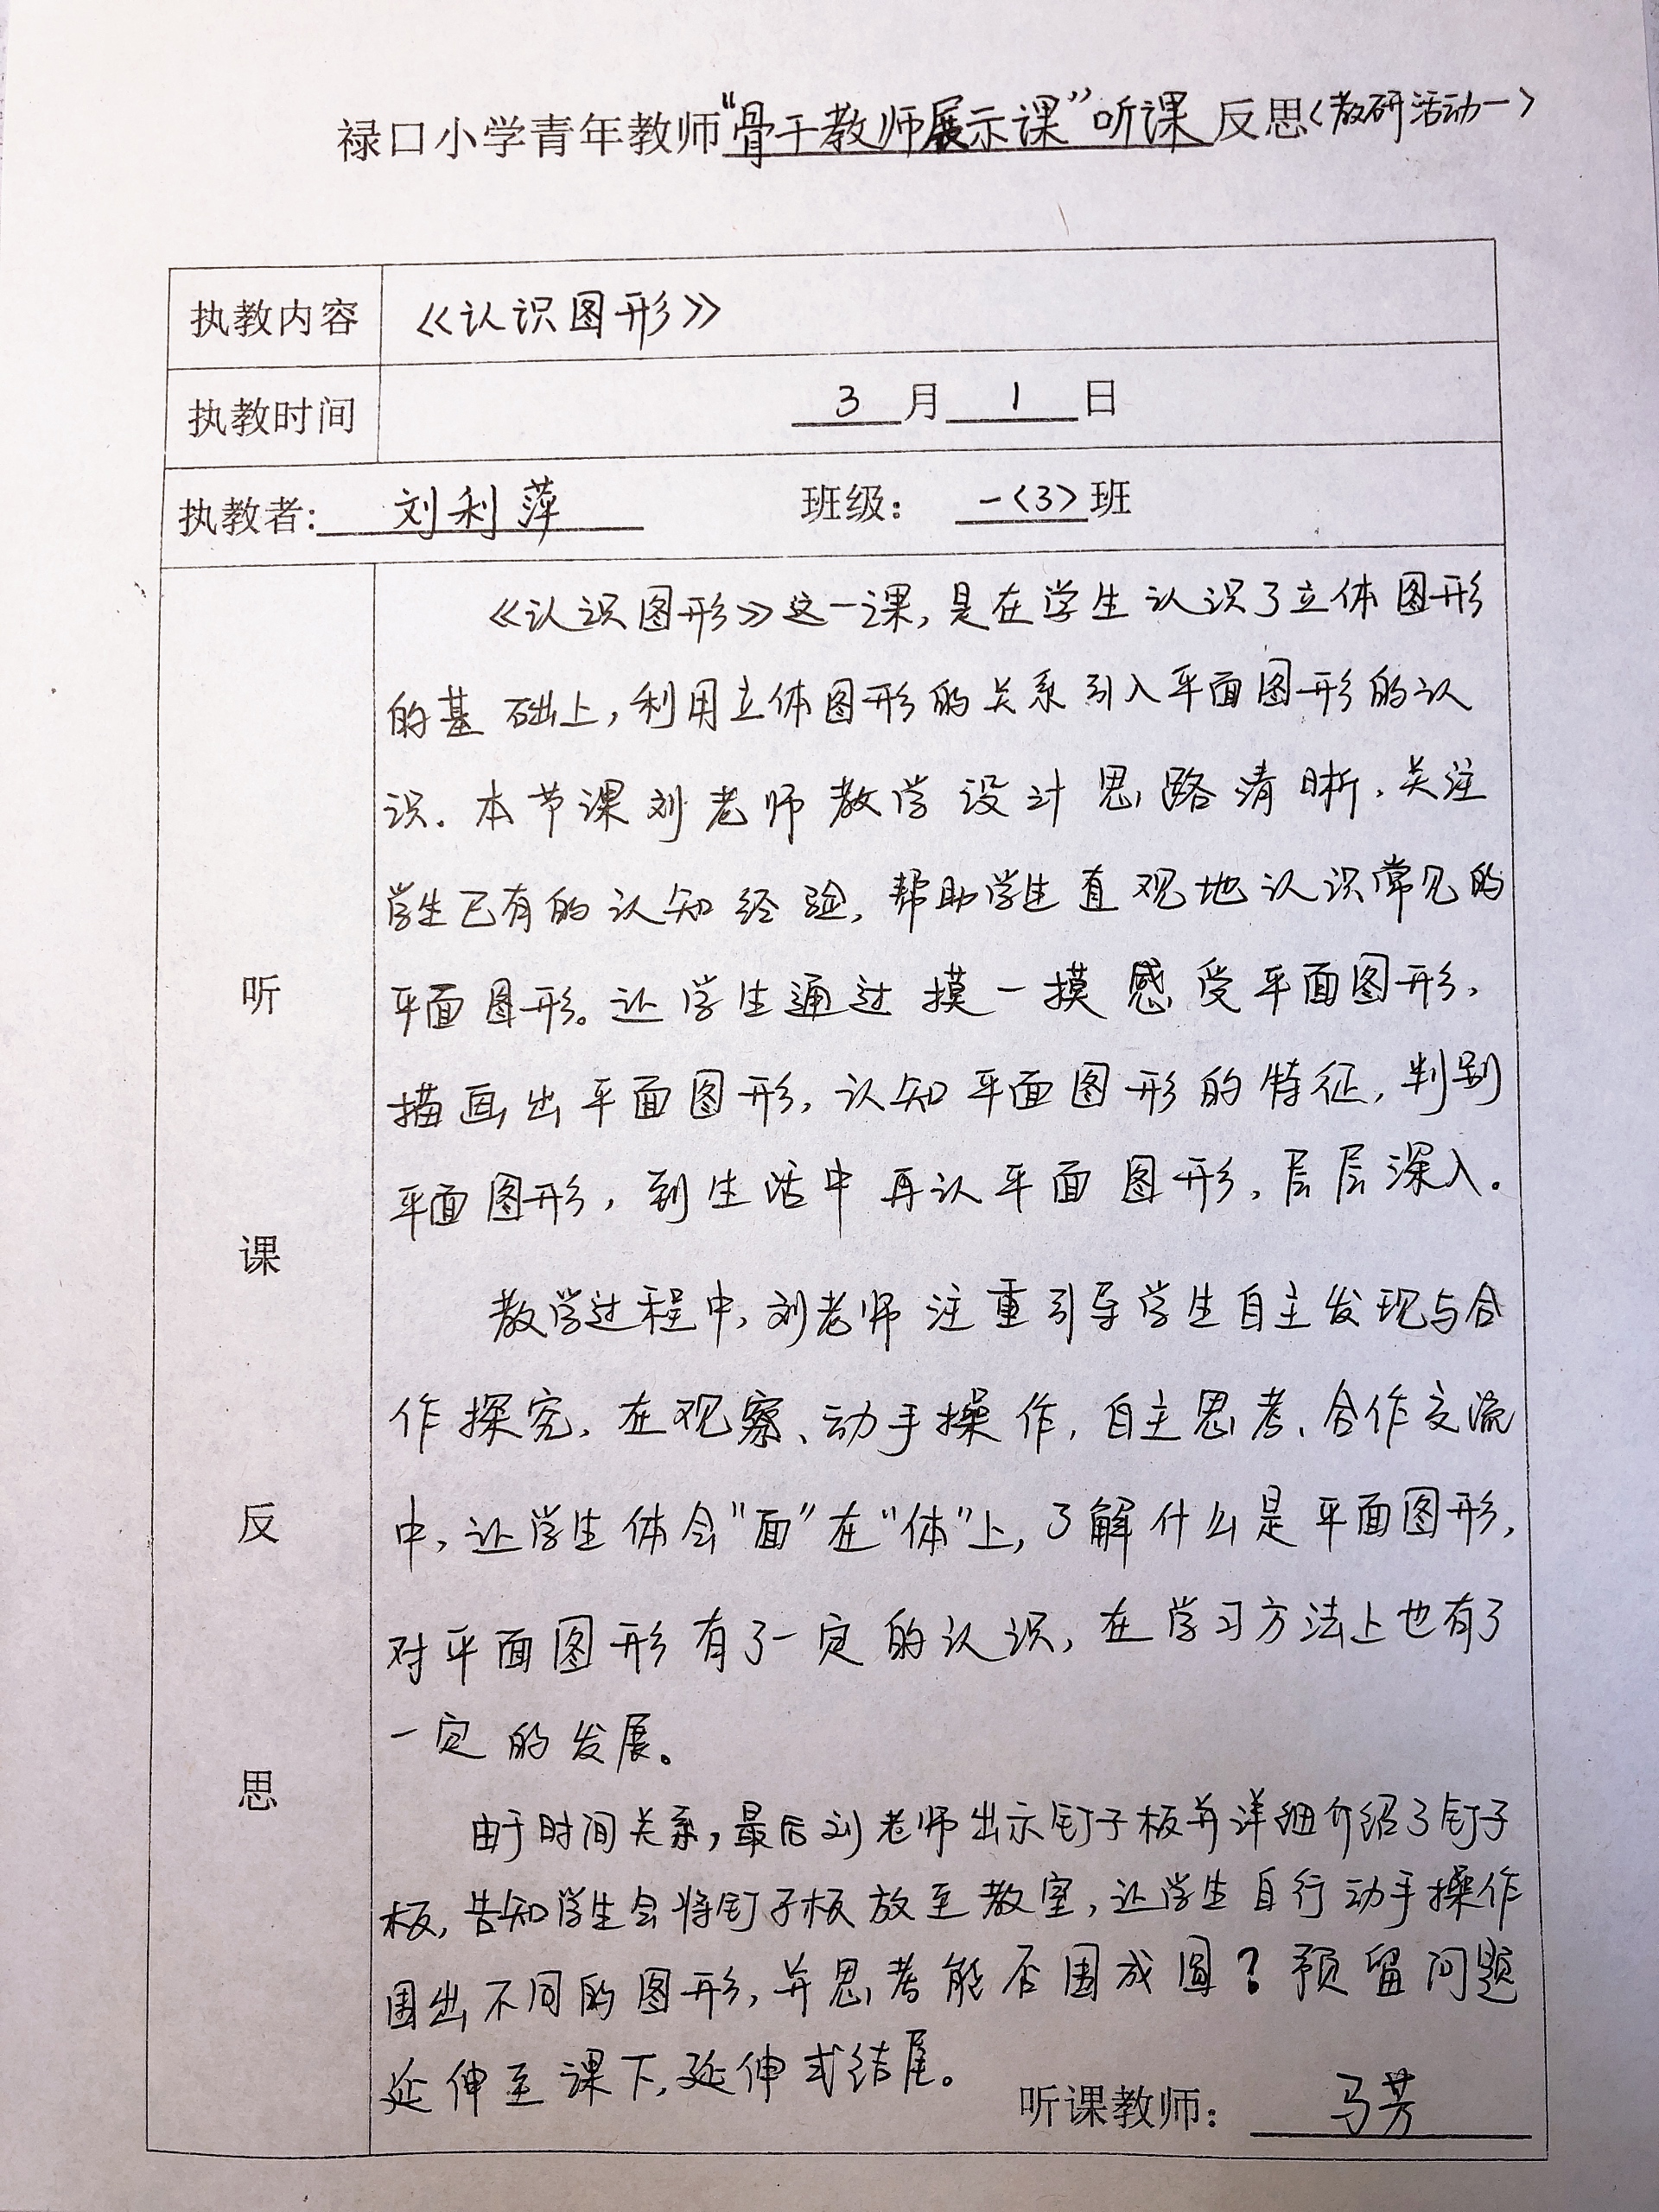 禄口小学青年教师“骨干教师展示课”听课反思<教研活动一>
执教内容 《认识图形》
执教时间 3月1日
执教者: 刘利萍 班级: 一<3>班
《认识图形》这一课,是在学生认识了立体图形
的基础上,利用立体图形的关系引入平面图形的认
识.本节课刘老师教学设计思路清晰.关注
学生已有的认知经验,帮助学生直观地认识常见的
平面图形。让学生通过摸一摸感受平面图形,
描画出平面图形,认知平面图形的特征,判别
平面图形,到生活中再认平面图形,层层深入。
教学过程中,刘老师注重引导学生自主发现与合
作探究.在观察、动手操作,自主思考、合作交流
中,让学生体会“面”在“体”上,了解什么是平面图形,
对平面图形有了一定的认识,在学习方法上也有了
一定的发展。
由于时间关系,最后刘老师出示钉子板并详细介绍了钉子
板,告知学生会将钉子板放至教室,让学生自行动手操作
围出不同的图形,并思考能否围成圆?预留问题
延伸至课下,延伸式结尾。
听课教师: 马芳
听
课
反
思